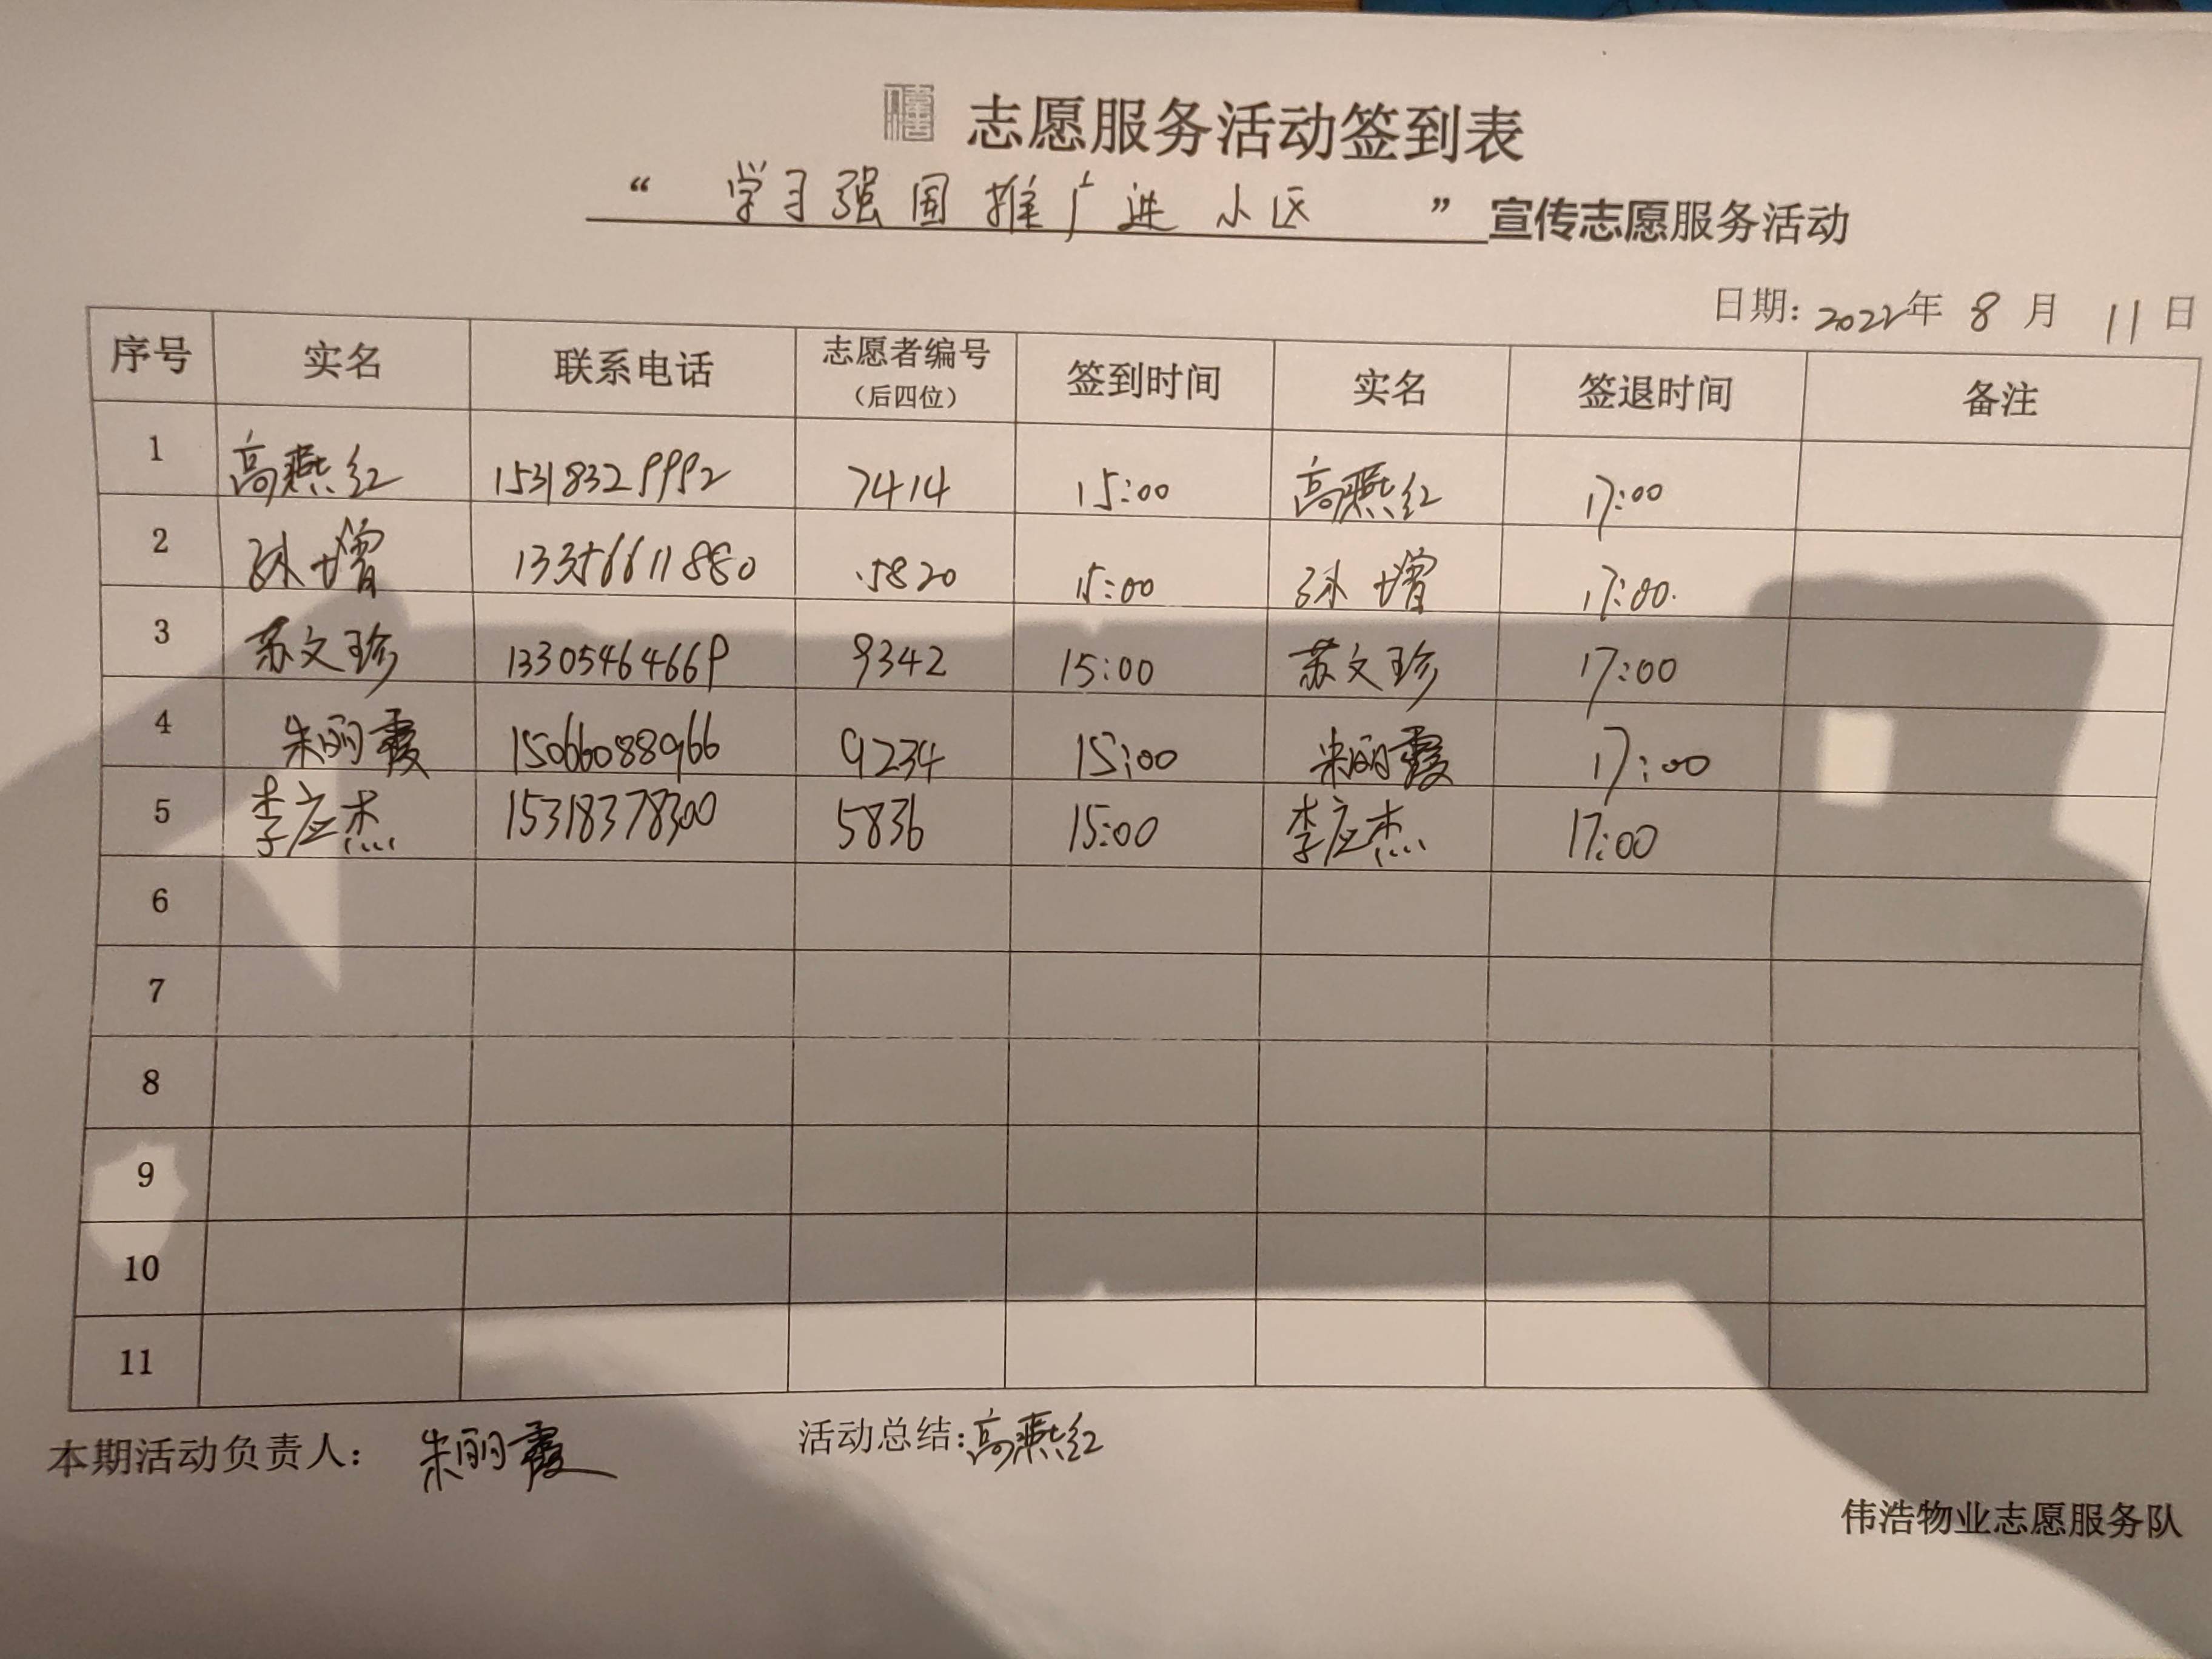 志愿服务活动签到表
“ 学习强国推广进小区 ”宣传志愿服务活动
日期: 2022年 8 月 11 日
序号 实名 联系电话 志愿者编号（后四位） 签到时间 实名 签退时间 备注
1 高燕红 15318329992 7414 15:00 高燕红 17:00
2 孙增 13356611880 5820 15:00 孙增 17:00.
3 苏文珍 13305464669 9342 15:00 苏文珍 17:00
4 朱丽霞 15066088966 9234 15:00 朱丽霞 17:00
5 李应杰 15318378300 5836 15:00 李应杰 17:00
6
7
8
9
10
11
本期活动负责人： 朱丽霞 活动总结:高燕红
伟浩物业志愿服务队